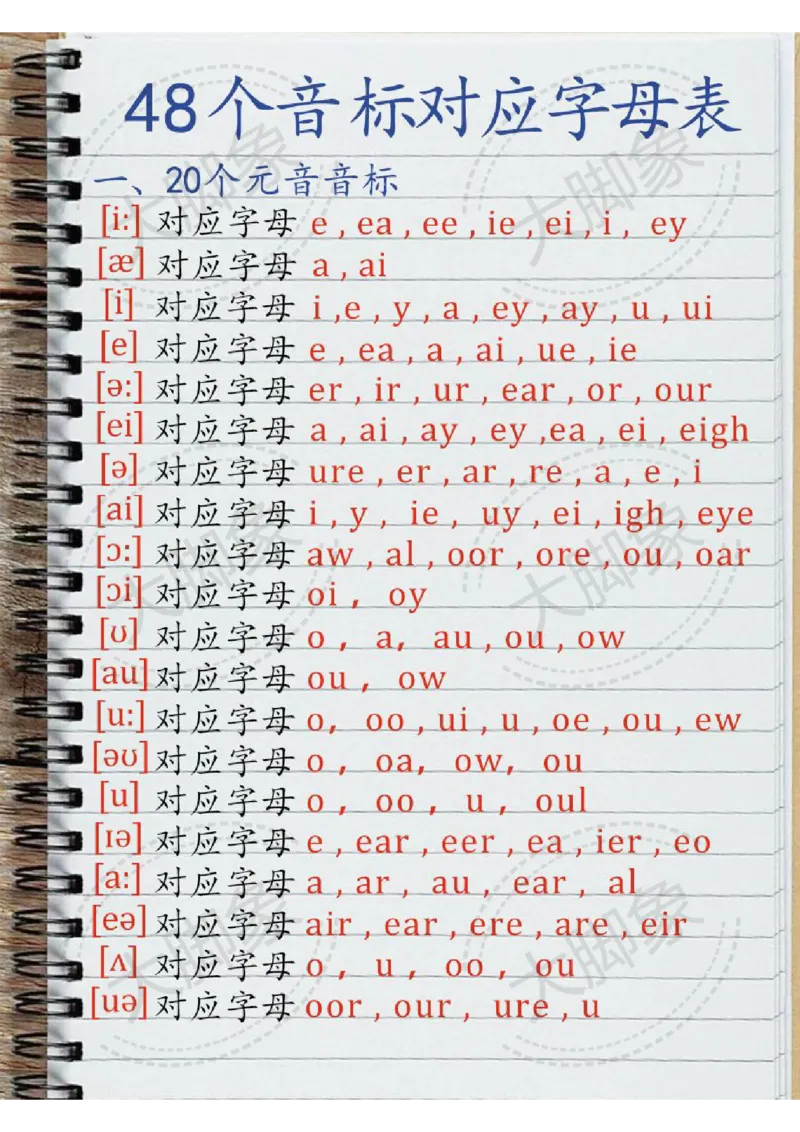 48个音标对应字母表
一、20个元音音标
[i:] 对应字母 e , ea , ee , ie , ei , i , ey
[æ] 对应字母 a , ai
[i] 对应字母 i ,e , y , a , ey , ay , u , ui
[e] 对应字母 e , ea , a , ai , ue , ie
[ə:] 对应字母 er , ir , ur , ear , or , our
[ei] 对应字母 a , ai , ay , ey ,ea , ei , eigh
[ə] 对应字母 ure , er , ar , re , a , e , i
[ai] 对应字母 i , y , ie , uy , ei , igh , eye
[ɔ:] 对应字母 aw , al , oor , ore , ou , oar
[ɔi] 对应字母 oi , oy
[ʊ] 对应字母 o , a, au , ou , ow
[au] 对应字母 ou , ow
[u:] 对应字母 o, oo , ui , u , oe , ou , ew
[əʊ] 对应字母 o , oa, ow, ou
[u] 对应字母 o , oo , u , oul
[ɪə] 对应字母 e , ear , eer , ea , ier , eo
[a:] 对应字母 a , ar , au , ear , al
[eə] 对应字母 air , ear , ere , are , eir
[ʌ] 对应字母 o , u , oo , ou
[uə] 对应字母 oor , our , ure , u
大脚象
大脚象
大脚象
大脚象
大脚象
大脚象